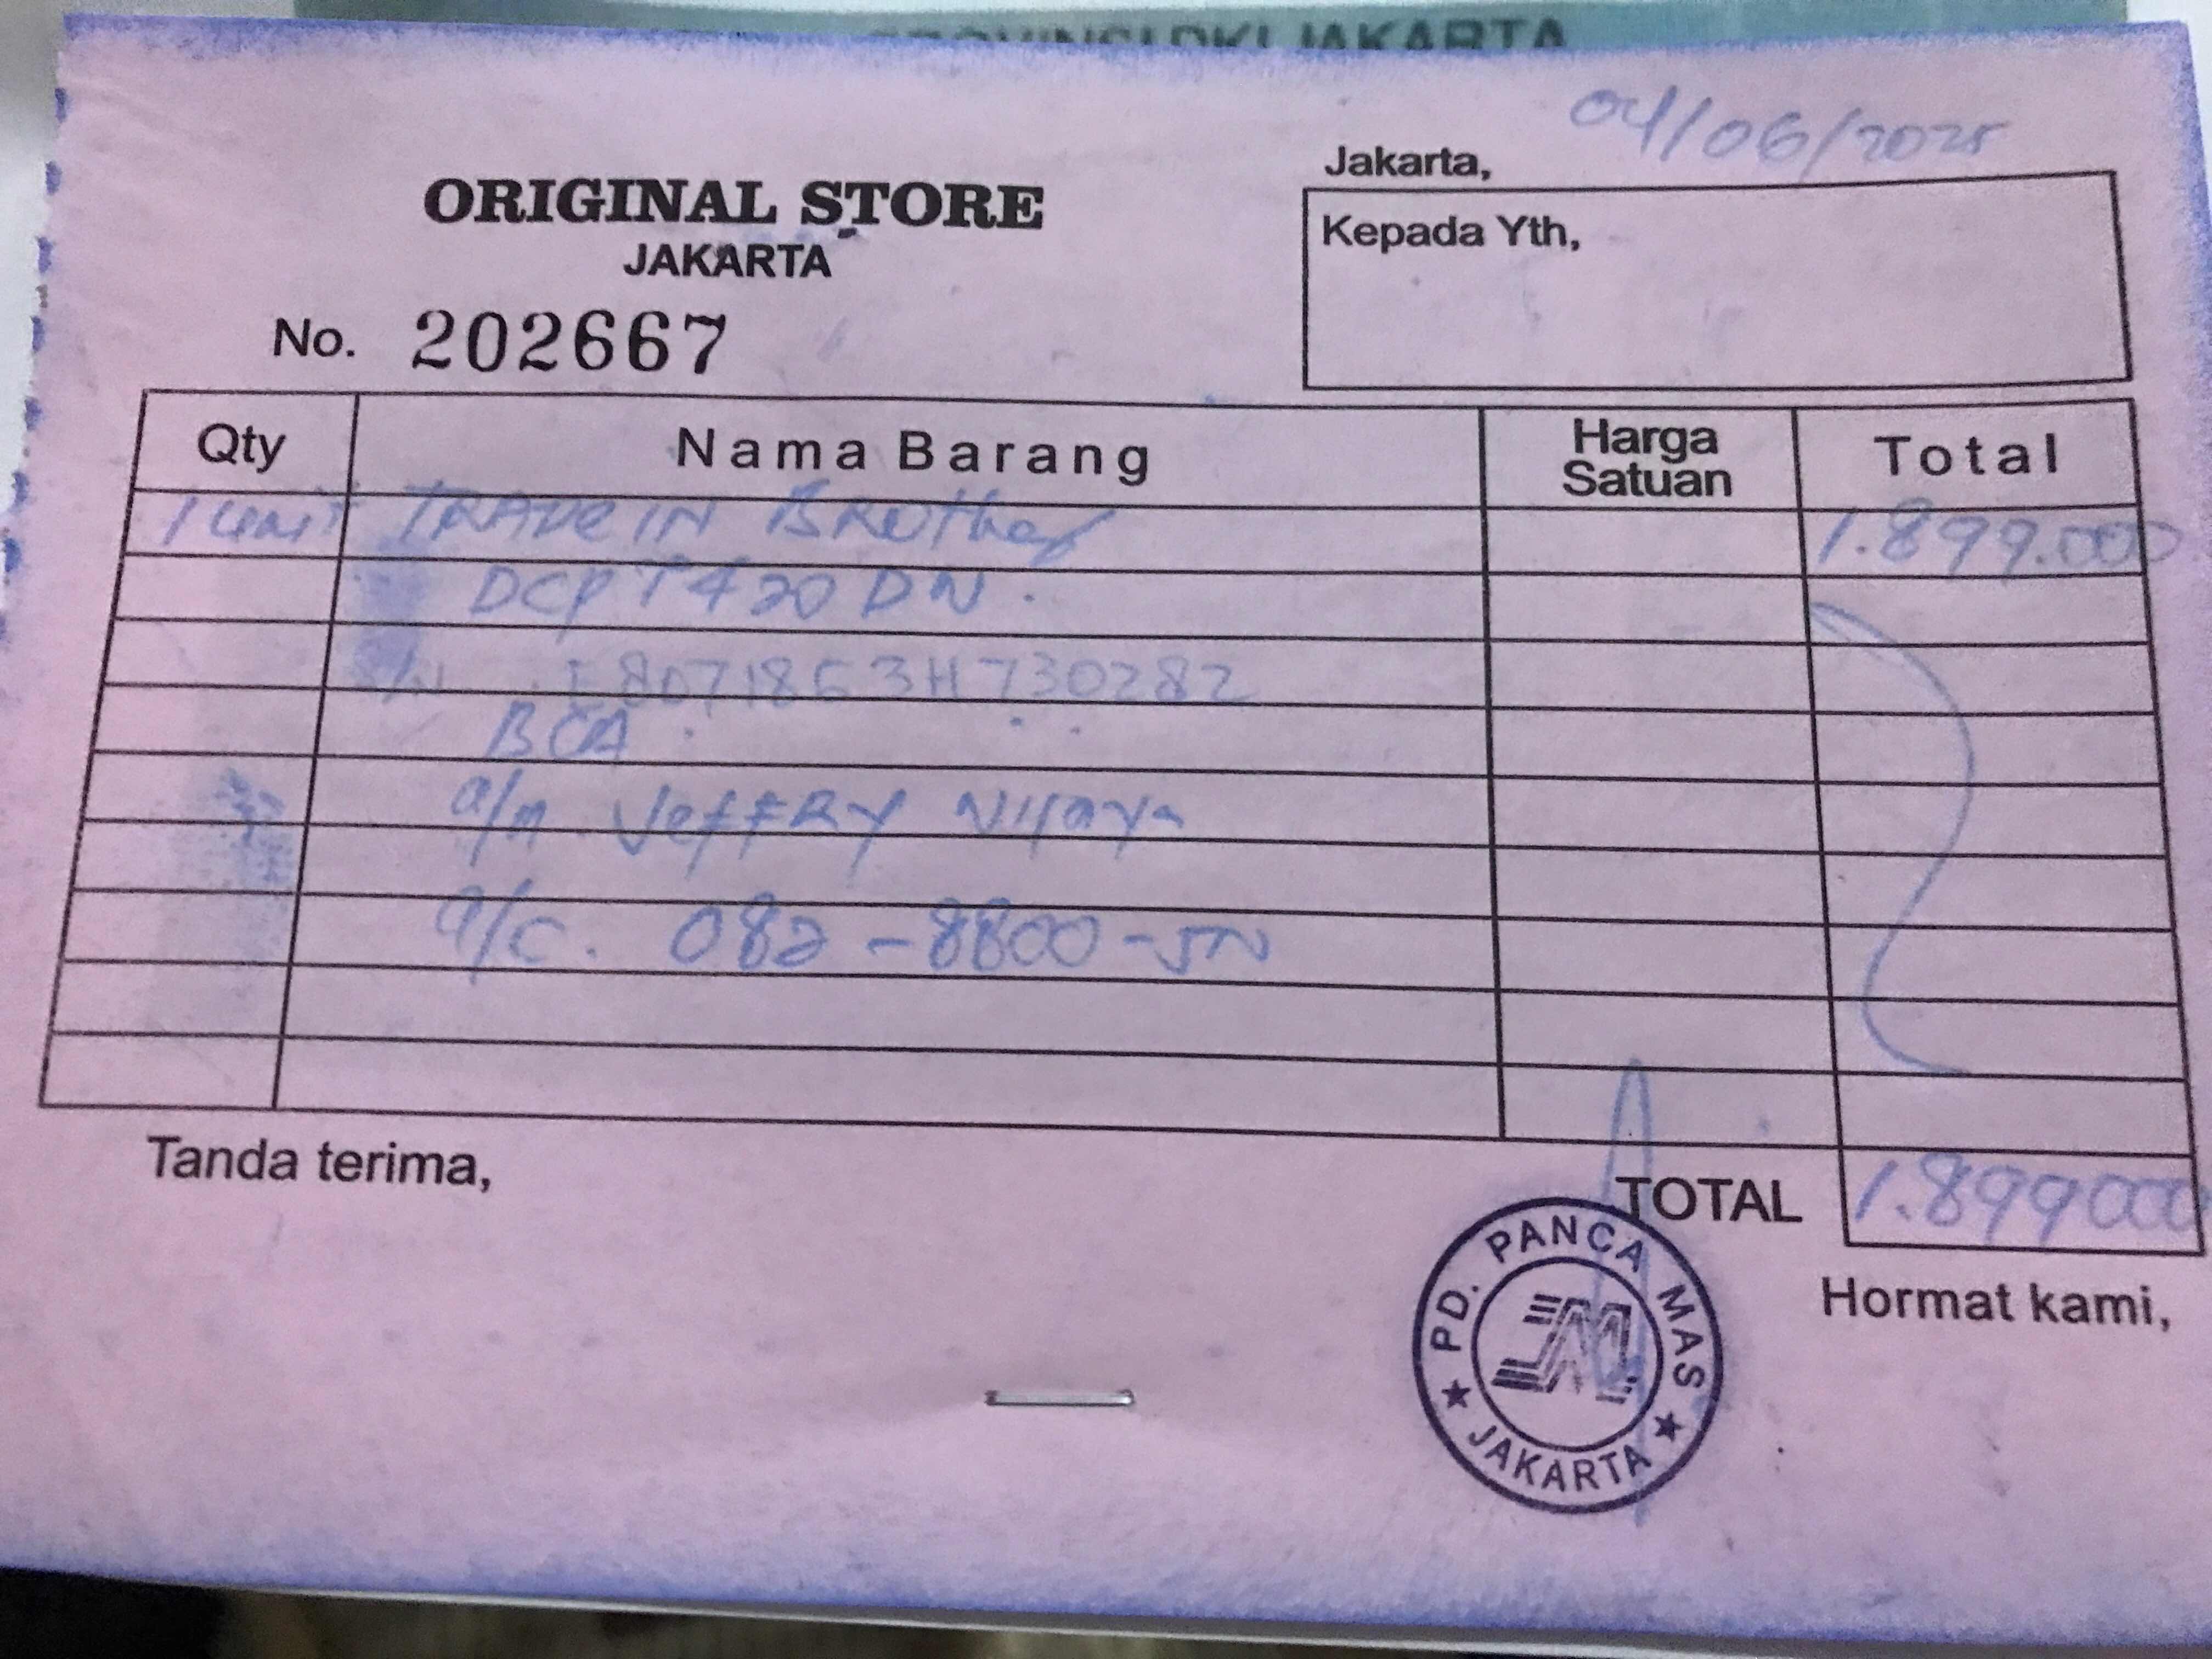 PROVINSI DKI JAKARTA
04/06/2025
Jakarta,
ORIGINAL STORE
JAKARTA
Kepada Yth,
No. 202667
Qty Nama Barang Harga Satuan Total
1 unit TRADE IN Brother 1.899.000
DCP T420 DN.
S/N 80718 3H730282
BCA
a/n. Jeffry
a/c. 082-8800-
Tanda terima,
TOTAL 1.899000
PD. PANCA MAS
JAKARTA
Hormat kami,